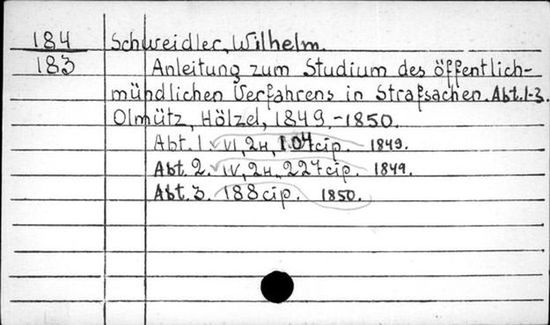 184 Schweidler, Wilhelm.
183 Anleitung zum Studium des öffentlich-
mündlichen Verfahrens in Strafsachen. Abt. 1-3.
Olmütz, Hölzel, 1849.-1850.
Abt. 1. VI, 2H, 104cip. 1849.
Abt. 2. IV, 2H, 227cip. 1849.
Abt. 3. 188cip. 1850.